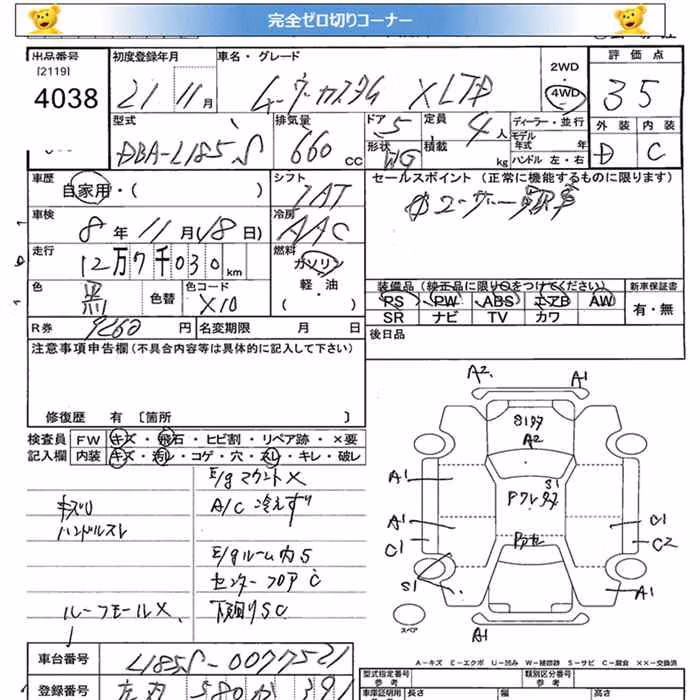 完全ゼロ切りコーナー
出品番号 初度登録年月 車名・グレード 2WD 評価点
[2119]
4038 21年 11月 ムーヴカスタム X LTD 4WD 35
型式 排気量 ドア 5 定員 4人 ディーラー・並行 外装 内装
DBA-L185S 660 CC 形状 WG 積載 kg モデル年式 年 ハンドル 左・右 D C
車歴 シフト セールスポイント (正常に機能するものに限ります)
自家用・( ) IAT
車検 8年 11月(18日) 冷房 AAC
走行 12万7千030km 燃料 ガソリン・軽・油 ( )
色 黒 色替 色コード X10
装備品 (純正品に限り○をつけてください) 新車保証書
PS PW ABS エアB AW 有・無
SR ナビ TV カワ
R券 9260円 名変期限 月 日 後日品
注意事項申告欄(不具合内容等は具体的に記入して下さい)
修復歴 有 [箇所 ]
検査員 FW キズ・飛石・ヒビ割・リペア跡・×要
記入欄 内装 キズ・汚れ・コゲ・穴・スレ・キレ・破レ
E/gマウントX
キズU A/C冷えず
ハンドルスレ
E/gルーム内S
センターフロアC
ルーフモールX 下回りSC
A2 A1
S1タタ
A2
A1 S1
A1 C1
C1 C2
S1 A1
スペア A1
A-キズ E-エクボ U-凹み W-補修跡 S-サビ C-腐食 ××-交換済
車台番号 L185S-0077521 型式指定番号 類別区分番号
参考 参考
登録番号 580 391 車庫証明用 長さ 幅 高さ